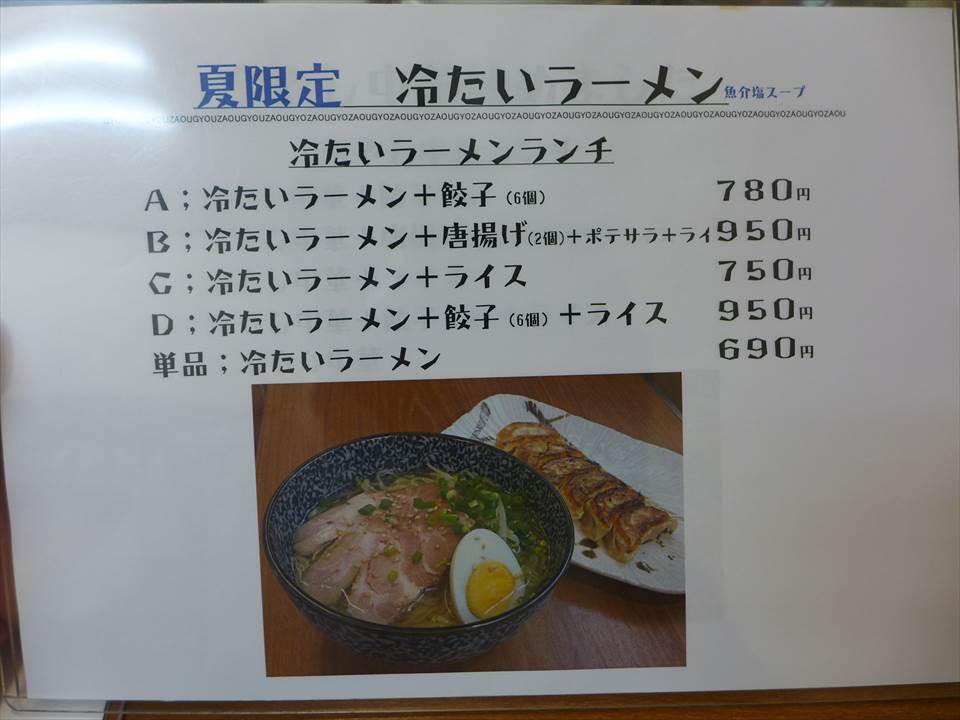 夏限定、 冷たいラーメン 魚介塩スープ
UZAOUGYOUZAOUGYOZAOUGYOZAOUGYOZAOUGYOZAOUGYOZAOUGYOZAOUGYOZAOUGYOZAOUGYOZAOUGYOZAOU
冷たいラーメンランチ
A；冷たいラーメン＋餃子（6個） 780円
B；冷たいラーメン＋唐揚げ(2個)＋ポテサラ＋ライ 950円
C；冷たいラーメン＋ライス 750円
D；冷たいラーメン＋餃子（6個）＋ライス 950円
単品；冷たいラーメン 690円